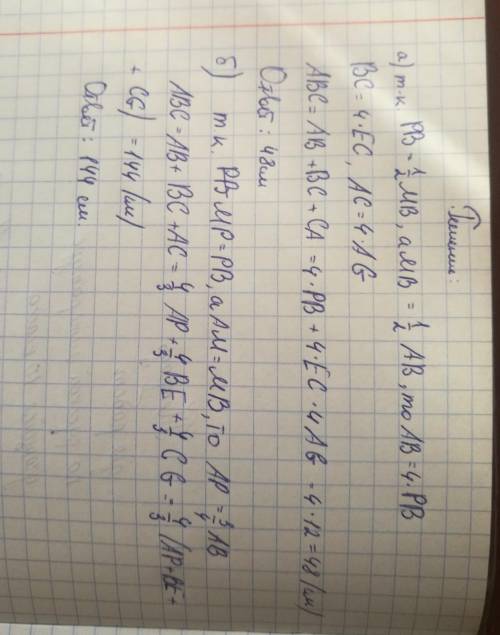 Решение:
а) т.к PB = 1/2 MB, а MB = 1/2 AB, то AB = 4·PB
BC = 4·EC, AC = 4AG
ABC = AB + BC + CA = 4·PB + 4·EC·4AG = 4·12 = 48 (см)
Ответ: 48 см
б) т.к. PB MP = PB, а AM = MB, то AP = 3/4 AB
ABC = AB + BC + AC = 4/3 AP + 4/3 BE + 4/3 CG = 4/3 (AP + BE +
+ CG) = 144 (см)
Ответ: 144 см.